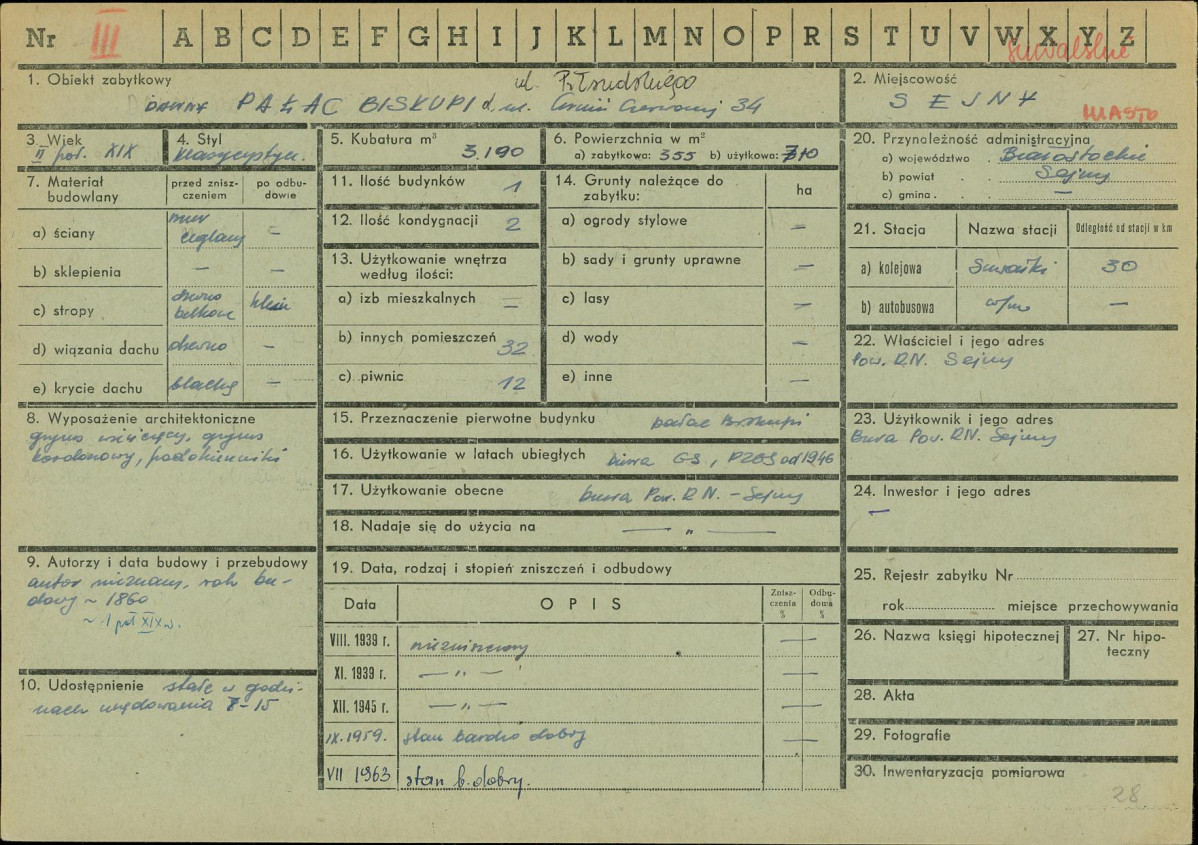 Nr III A B C D E F G H I J K L M N O P R S T U V W X Y Z
suwalskie
1. Obiekt zabytkowy
ul. Piłsudskiego
DAWNY PAŁAC BISKUPI d. ul. Armii Czerwonej 34
2. Miejscowość
SEJNY
MIASTO
3. Wiek
II poł. XIX
4. Styl
klasycystycz.
5. Kubatura m³
3.190
6. Powierzchnia w m²
a) zabytkowa: 355 b) użytkowa: 710
20. Przynależność administracyjna
a) województwo . Białostockie
b) powiat . . Sejny
c) gmina . . —
7. Materiał budowlany
przed znisz-
czeniem
po odbu-
dowie
a) ściany
mur
ceglany
–
b) sklepienia – –
c) stropy
drewno
belkowe
klein
d) wiązania dachu drewno –
e) krycie dachu blacha –
11. Ilość budynków 1
12. Ilość kondygnacji 2
13. Użytkowanie wnętrza
według ilości:
a) izb mieszkalnych –
b) innych pomieszczeń 32
c) piwnic 12
14. Grunty należące do
zabytku:
ha
a) ogrody stylowe –
b) sady i grunty uprawne –
c) lasy –
d) wody –
e) inne –
21. Stacja Nazwa stacji Odległość od stacji w km
a) kolejowa Suwałki 30
b) autobusowa w/m —
22. Właściciel i jego adres
Pow. R.N. Sejny
8. Wyposażenie architektoniczne
gzyms wieńczący, gzyms
kordonowy, podokienniki
15. Przeznaczenie pierwotne budynku pałac Biskupi
16. Użytkowanie w latach ubiegłych biura GS, PZGS od 1946
17. Użytkowanie obecne biura Pow. R.N. – Sejny
18. Nadaje się do użycia na — „ —
23. Użytkownik i jego adres
Biura Pow. RN. Sejny
24. Inwestor i jego adres
–
9. Autorzy i data budowy i przebudowy
autor nieznany, rok bu-
dowy ~ 1860
~ 1 poł XIX w.
10. Udostępnienie stałe w godzi-
nach urzędowania 8–15
19. Data, rodzaj i stopień zniszczeń i odbudowy
Data
OPIS
Znisz-
czenia
%
Odbu-
dowa
%
VIII. 1939 r. niezniszczony —
XI. 1939 r. — „ — —
XII. 1945 r. — „ — —
IX.1959. stan bardzo dobry —
VII 1963 stan b. dobry.
25. Rejestr zabytku Nr
rok miejsce przechowywania
26. Nazwa księgi hipotecznej
27. Nr hipo-
teczny
28. Akta
29. Fotografie
30. Inwentaryzacja pomiarowa
28